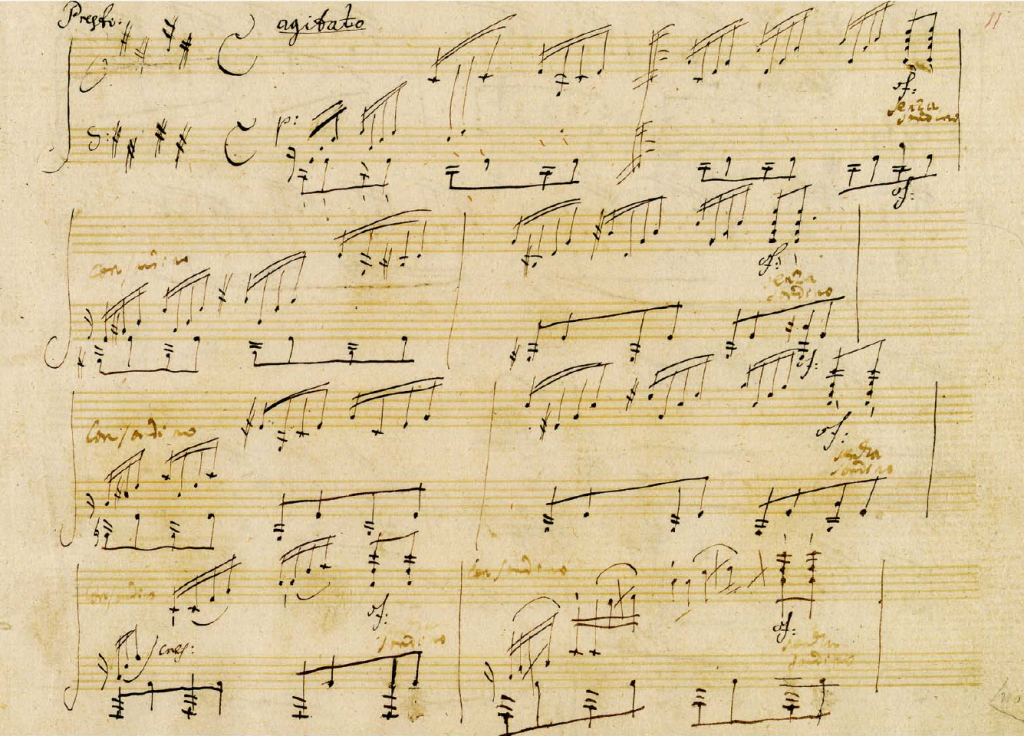 Presto: agitato
11
p:
sf:
senza
sordino
sf:
con sordino
sf:
senza
sordino
sf:
con sordino
sf:
senza
sordino
con sordino
con sordino
sf:
sf:
cresc:
senza
sordino
senza
sordino